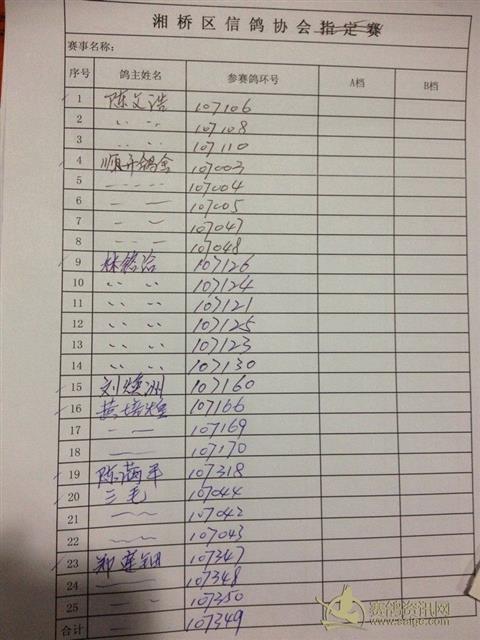 湘桥区信鸽协会指定赛
赛事名称:
序号 鸽主姓名 参赛鸽环号 A档 B档
1 陈文浩 107106
2 〃 〃 107108
3 〃 〃 107110
4 顺开鸽舍 107003
5 107004
6 107005
7 107047
8 107048
9 林 107126
10 〃 〃 107124
11 〃 〃 107121
12 〃 〃 107125
13 〃 〃 107123
14 〃 〃 107130
15 刘 洲 107160
16 黄培煌 107166
17 107169
18 107170
19 陈满平 107318
20 三毛 107044
21 107042
22 107043
23 郑 107347
24 107348
25 107350
合计 107349
赛鸽资讯网
www.saige.com